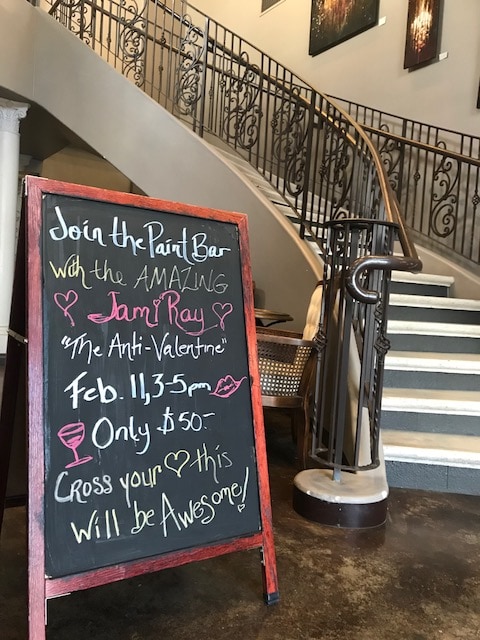 Join the Paint Bar
with the AMAZING
Jami Ray
"The Anti-Valentine"
Feb. 11, 3-5pm
Only $50.-
Cross your this
Will be Awesome!